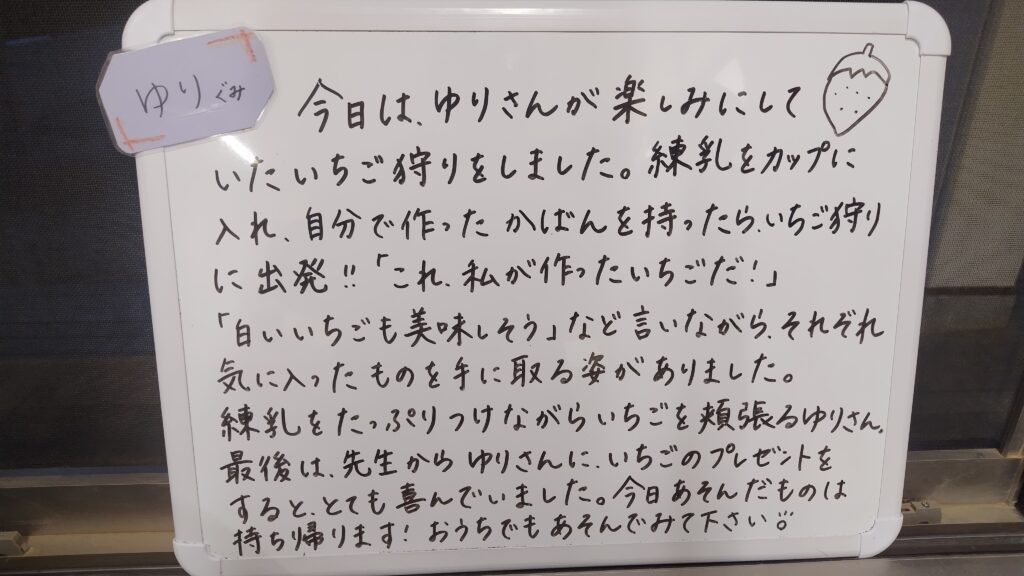 ゆりぐみ
今日は、ゆりさんが楽しみにして
いたいちご狩りをしました。練乳をカップに
入れ、自分で作ったかばんを持ったら、いちご狩り
に出発!!「これ、私が作ったいちごだ!」
「白いいちごも美味しそう」など言いながら、それぞれ
気に入ったものを手に取る姿がありました。
練乳をたっぷりつけながらいちごを頬張るゆりさん。
最後は、先生からゆりさんに、いちごのプレゼントを
すると、とても喜んでいました。今日あそんだものは
持ち帰ります!おうちでもあそんでみて下さい